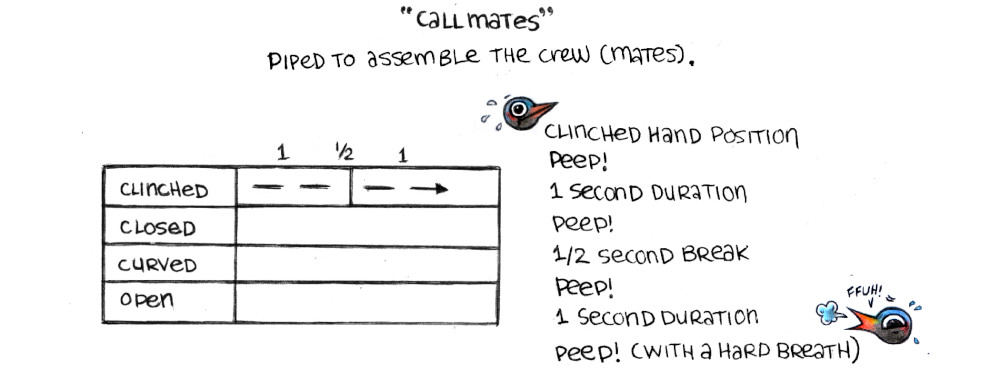 "CaLL maTes"
PIPED TO assemBLe THe crew (maTes).
1 1/2 1
CLINCHED
CLOSED
CURVED
OPen
CLINCHED HanD POSITION
Peep!
1 SeconD DuraTIon
Peep!
1/2 SeconD Break
Peep!
1 SeconD DuraTIon
Peep! (WITH a HarD BreaTH)
FFUH!